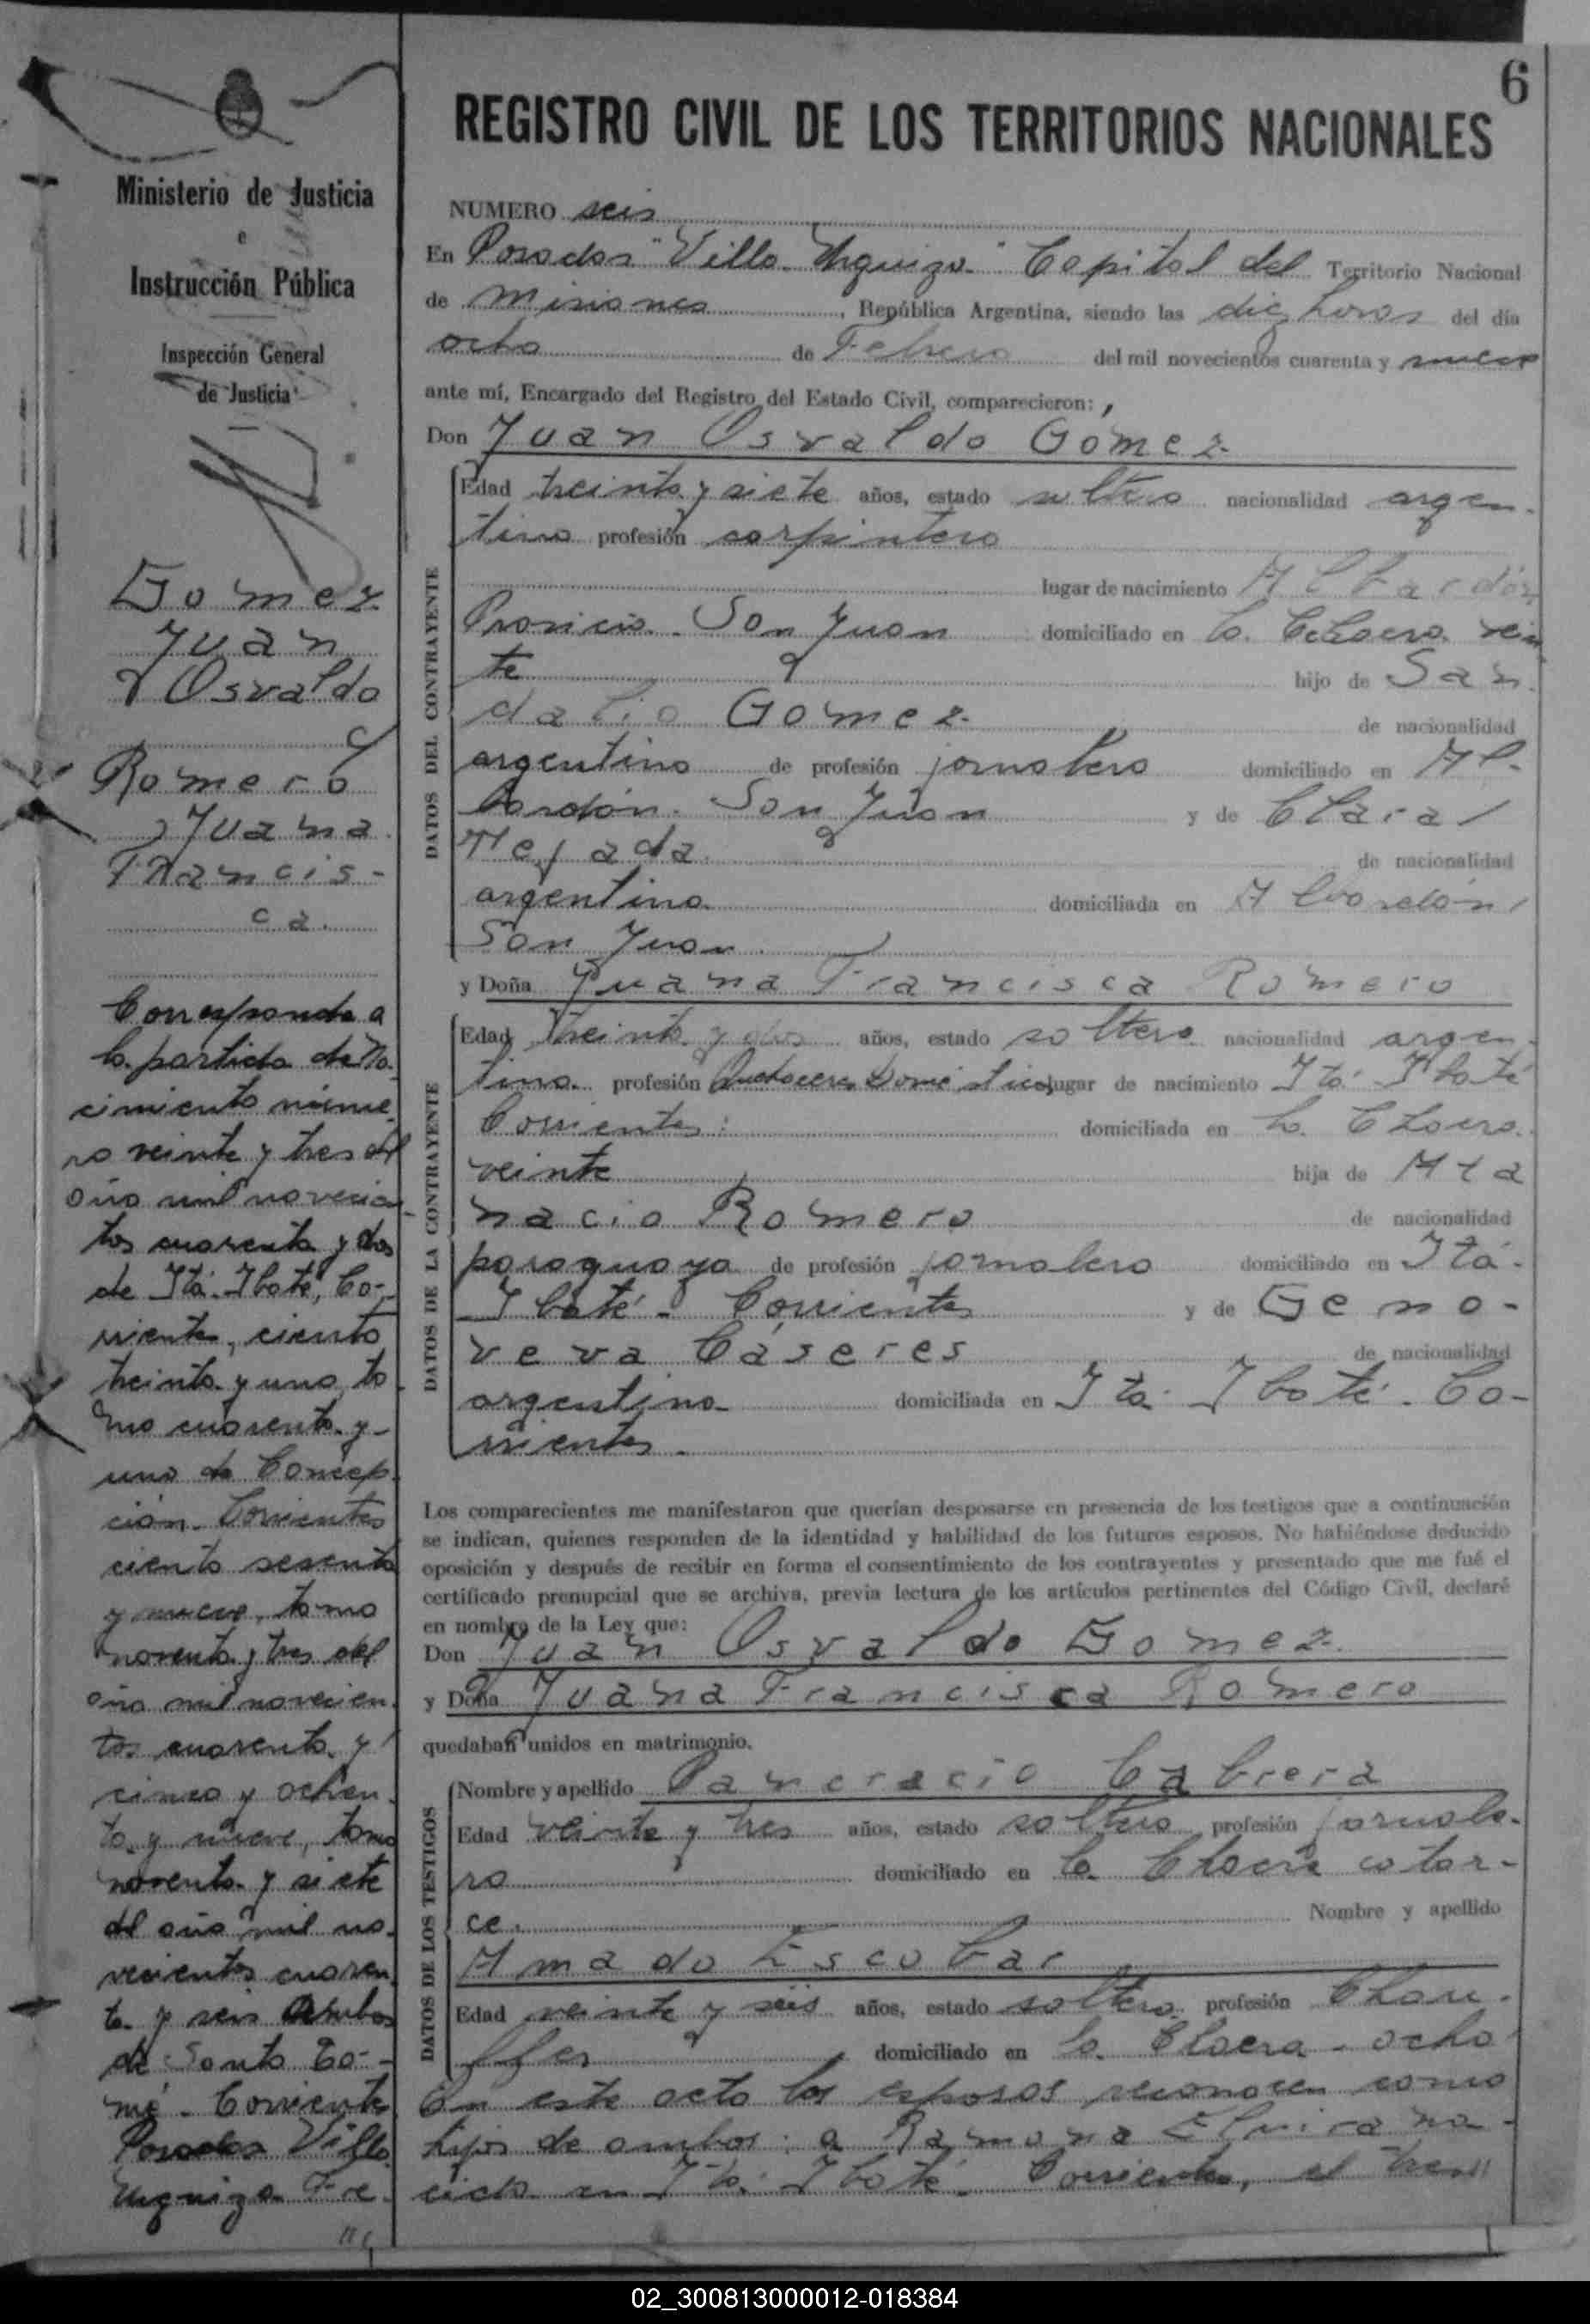 6
REGISTRO CIVIL DE LOS TERRITORIOS NACIONALES
Ministerio de Justicia
e
Instrucción Pública
Inspección General
de Justicia
Gomez
Juan
Osvaldo
c/
Romero
Juana
Francis-
ca.
Corresponde a
la partida de Na-
cimiento núme-
ro veinte y tres del
año mil novecien
tos cuarenta y dos
de Itá-Ibaté, Co-
rrientes, ciento
treinta y uno to
mo cuarenta y
uno de Concep
ción. Corrientes
ciento sesenta
y nueve, tomo
noventa y tres del
año mil novecien
tos cuarenta y
cinco y ochen
ta y nueve, tomo
noventa y siete
del año mil no-
vecientos cuaren
ta y seis ambos
de Santo To-
mé - Corrientes
Posadas Villa
Urquiza Fe-
///
NUMERO seis
En Posadas "Villa Urquiza" Capital del Territorio Nacional
de Misiones, República Argentina, siendo las diez horas del día
ocho de Febrero del mil novecientos cuarenta y nueve
ante mí, Encargado del Registro del Estado Civil, comparecieron:
Don Juan Osvaldo Gómez
DATOS DEL CONTRAYENTE
Edad treinta y siete años, estado soltero nacionalidad argen-
tino profesión carpintero
lugar de nacimiento Albardón
Provincia San Juan domiciliado en la Chacra vein
te hijo de San
dalio Gomez de nacionalidad
argentino de profesión jornalero domiciliado en Al-
bardón. San Juan y de Clara
Tejada de nacionalidad
argentina domiciliada en Albardón
San Juan
y Doña Juana Francisca Romero
DATOS DE LA CONTRAYENTE
Edad treinta y dos años, estado soltera nacionalidad argen-
tina profesión Quehaceres Domésticos lugar de nacimiento Itá Ibaté
Corrientes domiciliada en la Chacra
veinte hija de Ata
nacio Romero de nacionalidad
paraguaya de profesión jornalero domiciliado en Itá-
Ibaté - Corrientes y de Geno-
veva Cáseres de nacionalidad
argentina domiciliada en Itá-Ibaté. Co-
rrientes.
Los comparecientes me manifestaron que querían desposarse en presencia de los testigos que a continuación
se indican, quienes responden de la identidad y habilidad de los futuros esposos. No habiéndose deducido
oposición y después de recibir en forma el consentimiento de los contrayentes y presentado que me fué el
certificado prenupcial que se archiva, previa lectura de los artículos pertinentes del Código Civil, declaré
en nombre de la Ley que:
Don Juan Osvaldo Gomez
y Doña Juana Francisca Romero
quedaban unidos en matrimonio.
DATOS DE LOS TESTIGOS
Nombre y apellido Pancracio Cabrera
Edad veinte y tres años, estado soltero profesión jornale-
ro domiciliado en la Chacra cator-
ce. Nombre y apellido
Amado Escobar
Edad veinte y seis años, estado soltero profesión Chau-
ffer domiciliado en la Chacra - ocho
En este acto los esposos reconocen como
hijos de ambos: a Ramona Elvira na-
cida en Itá Ibaté. Corrientes, el trece
02_300813000012-018384